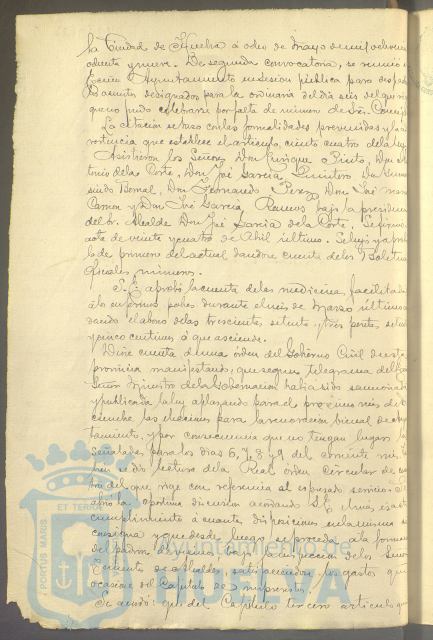 la Ciudad de Huelva á ocho de Mayo de mil ochocien
ochenta y nueve. De segunda convocatoria, se reunió e
Excmo Ayuntamiento en sesion pública para despa
los asuntos designados para la ordinaria del dia seis del que rige
que no pudo celebrarse por falta de número de Sres. Concej
La citación se hizo con las formalidades prevenidas y la
que establece el artículo ciento cuatro de la ley
Asistieron los Señores Don Enrique Prieto, Don
de la Corte, Don José García Quintero, Don
Bernal, Don Fernando Perez, Don José
y Don José García Ramos bajo la presidencia
del Sr. Alcalde Don José García de la Corte. Se
acta de veinte y cuatro de Abril último. Se leyó y
la de primero del actual dandose cuenta de los Boletines
oficiales números.
S. E. aprobó la cuenta de las medicinas facilitada
á los enfermos pobres durante el mes de Marzo último
el abono de las trescientas setenta y tres pesetas
y cinco centimos á que asciende.
Dióse cuenta de una orden del Gobierno Civil de esta
provincia manifestando, que segun telegrama del
Señor Ministro de la Gobernacion habia sido sancionada
y publicada la ley aplazando para el próximo mes de
las elecciones para la renovacion bienal de
tamiento, y por consecuencia que no tengan lugar la
señaladas para los dias 6, 7, 8 y 9 del corriente mes
se dió lectura de la Real orden circular de
del que rige con referencia al expresado servicio
abrió la oportuna discusion acordando S. E.
cumplimiento á cuanto disposiciones en la misma se
consigna y que desde luego se proceda á la
del padron de vecinos, bajo la inspeccion de los Señores
Tenientes de Alcaldes satisfaciendose los gastos que
ocasione del Capitulo de imprevistos.
Se acordó: que del Capitulo tercero artículo
PORTUS MARIS ET TERRÆ
Ayuntamiento de
HUELVA